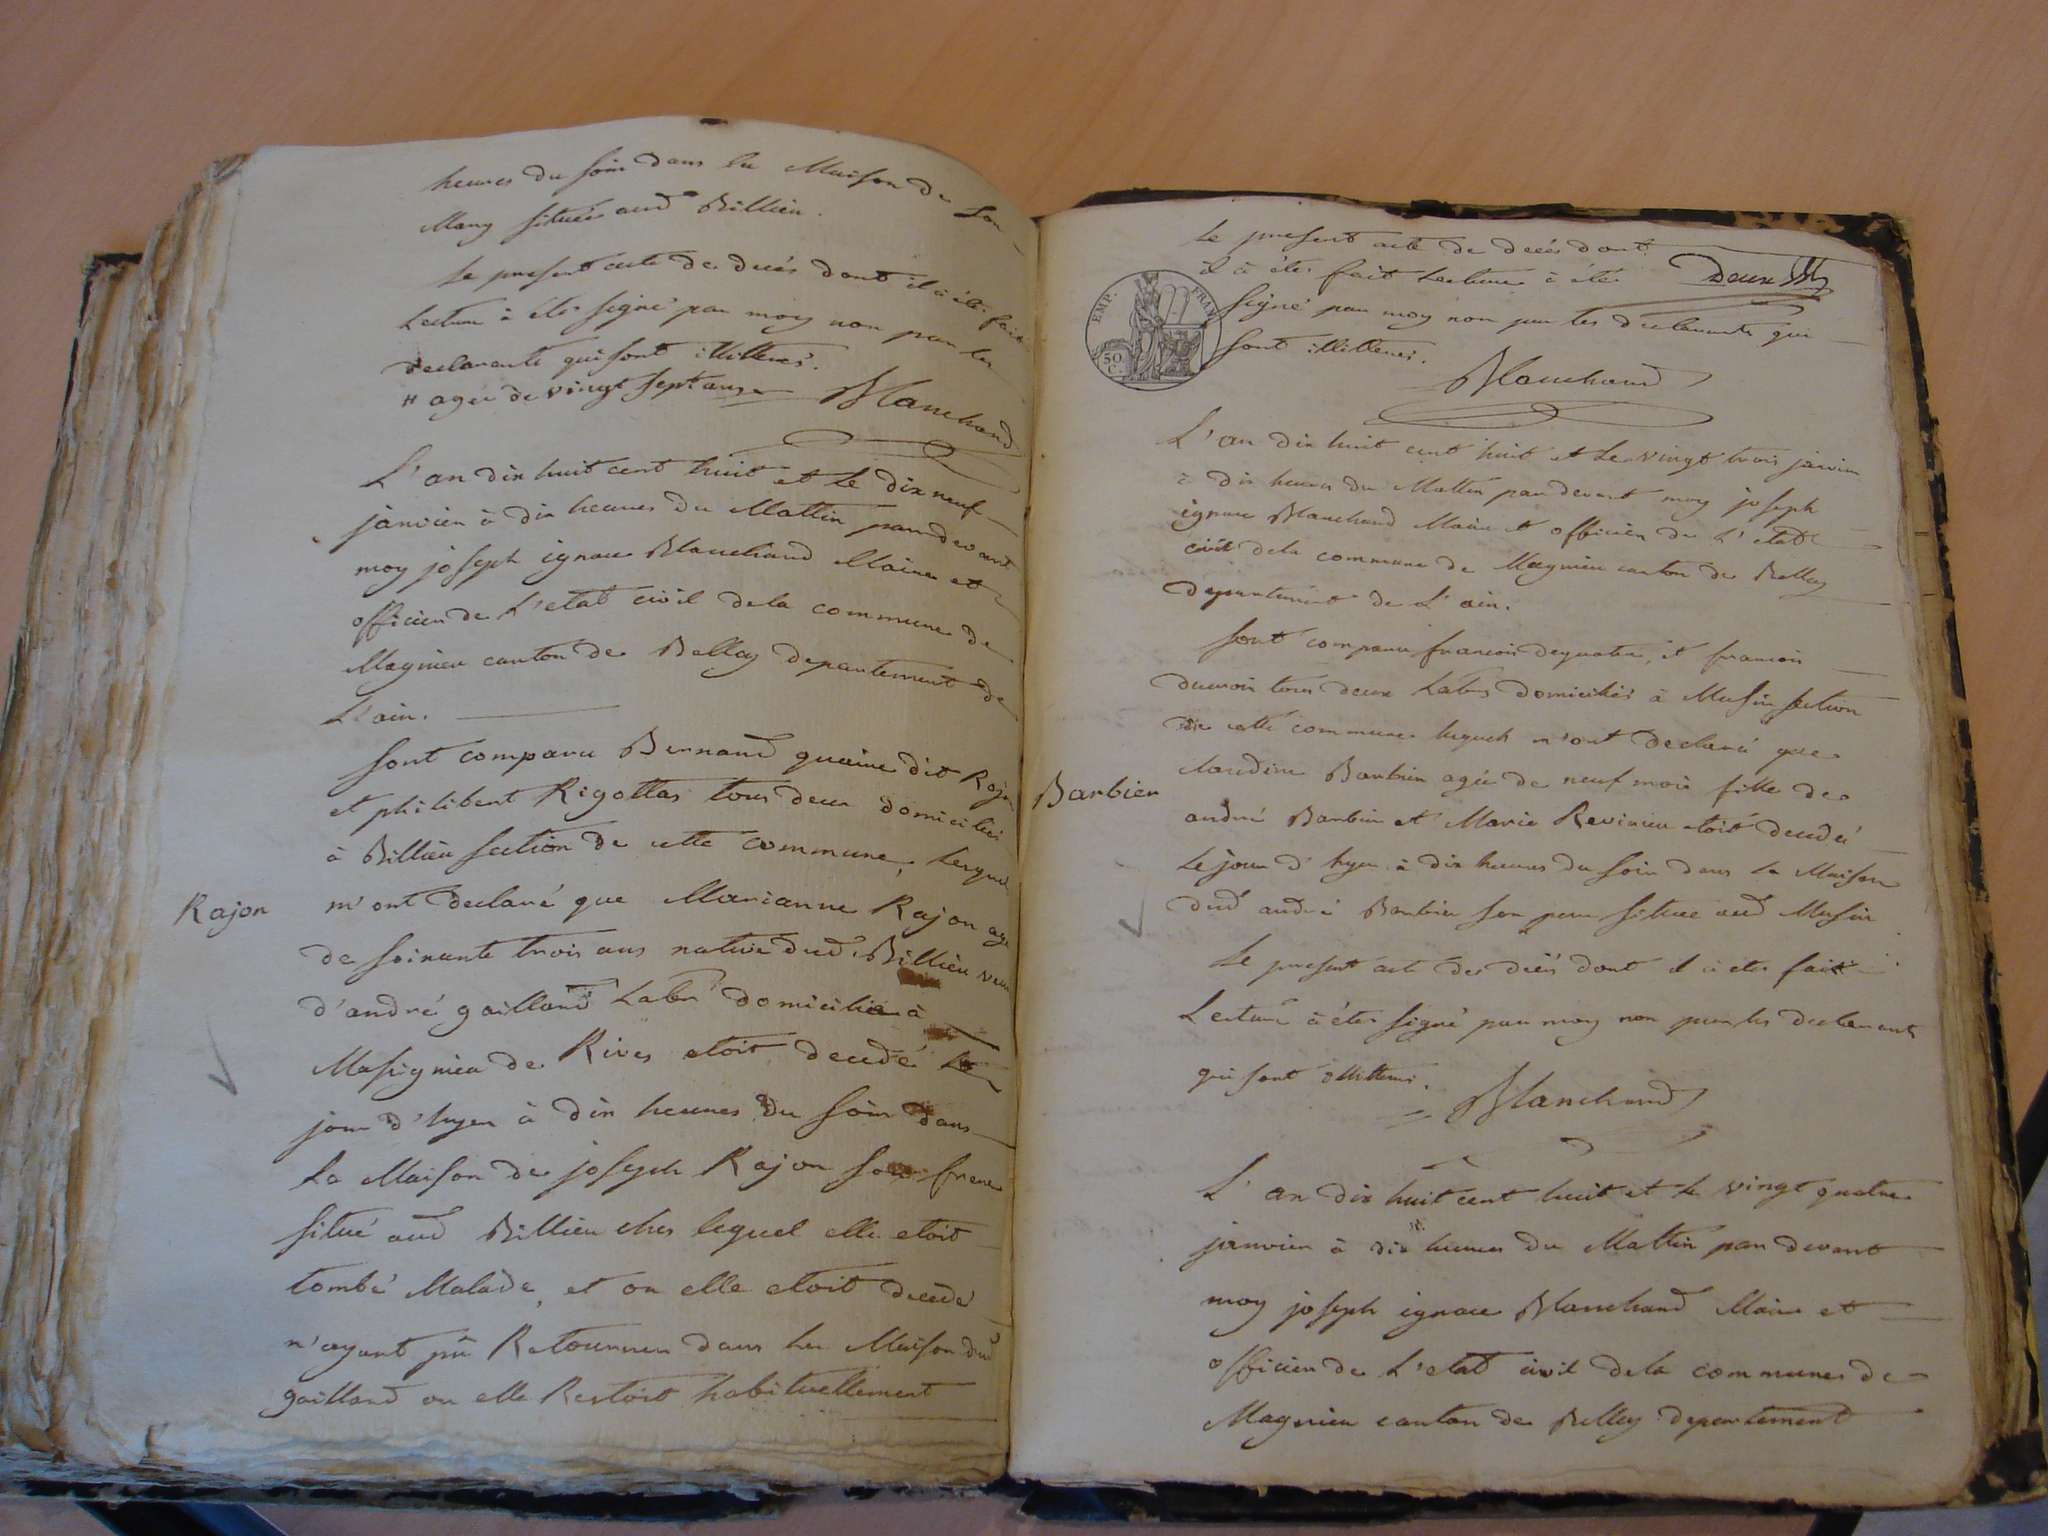 heures du soir dans la Maison de Son
Mary située aud Billieu.
Le present acte de decés dont il à été fait
Lecture à été signé par moy non par les
declarants qui sont illitterés.
# agée de vingt sept ans Blanchard
L'an dix huit cent huit et le dix neuf
janvier à dix heures du Mattin pardevant
moy joseph ignace Blanchard Maire et
officier de L'etat civil dela commune de
Magnieu canton de Belley departement de
L'ain.
Sont comparu Bernard guaine dit Rajon
et philibert Rigottas tous deux domiciliés
à Billieu section de cette commune, lesquels
Rajon
m'ont declaré que Marianne Rajon agé
de soixante trois ans native dud Billieu veuve
d'andré gaillard Labr domicilié à
Massignieu de Rives etoit decedé le
jour d'hyer à dix heures du soir dans
La Maison de joseph Rajon son frere
situé aud Billieu ches lequel elle etoit
tombé Malade, et ou elle etoit decedé
n'ayant pû Retourner dans la Maison dud
gaillard ou elle Restoit habituellement
Le present acte de decés dont
il à été fait Lecture à été
Deux
signé par moy non par les declarants qui
sont illitterés.
EMP. FRAN
50 C.
Blanchard
L'an dix huit cent huit et le vingt trois janvier
à dix heures du Mattin pardevant moy joseph
ignace Blanchard Maire et officier de L'etat
civil dela commune de Magnieu canton de Belley
departement de L'ain.
Sont comparu francois et francois
tous deux Labrs domiciliés à Musin section
de cette commune lequels m'ont declaré que
Barbier
claudine Barbier agée de neuf mois fille de
andré Barbier et Marie Revirieu etoit decedé
Le jour d'hyer à dix heures du soir dans la Maison
dud andré Barbier son pere situé aud Musin
Le present acte de decés dont il à été fait
Lecture à été signé par moy non par les declarants
qui sont illitterés.
Blanchard
L'an dix huit cent huit et le vingt quatre
janvier à dix heures du Mattin par devant
moy joseph ignace Blanchard Maire et
officier de L'etat civil dela commune de
Magnieu canton de Belley departement